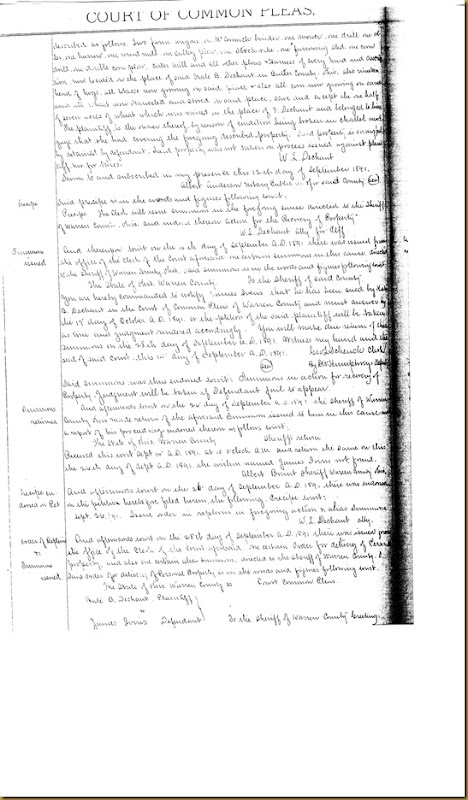 COURT OF COMMON PLEAS.
described as follows. Two farm wagons, McCormick binder, one mower, one drill
one harrow, one wind mill, one sulky plow, one Stock rake, one fanning mill, one corn
drill, one double corn plow, cider mill and all other plows Harness of every kind and
now located in the place of said Kate B. Dechant, in Butler County, Ohio, also nineteen
head of hogs, all wheat now growing on said place also all corn now growing on
and all wheat now harvested and stored on said place, save and except the one half
of seven acres of wheat which was raised on the place of J. Dechant and belonged to him
The plaintiff is the owner thereof by reason of condition being broken in chattel
that she had covering the foregoing described property. Said property is
by detained by defendant. Said property was not taken on process issued against
W. L. Dechant
Sworn to and subscribed in my presence this 12th day of September 1891.
Albert Anderson Notary Public in & for said County Seal
Precipe
Said precipe is in the words and figures following towit:
Precipe The Clerk will issue summons in the foregoing cause directed to the Sheriff
of Warren County, Ohio, and make therein action for the Recovery of Property"
W. L. Dechant atty for Plff
Summons
issued
And thereupon towit on the 14th day of September A.D. 1891 there was issued from
the office of the Clerk of the Court aforesaid a certain summons in this cause directed
to the sheriff of Warren County, Ohio, said summons is in the words and figures following towit
The State of Ohio Warren County. To the Sheriff of said County
You are hereby commanded to notify James Irons that he has been sued by Kate
B. Dechant in the Court of Common Pleas of Warren County and must answer by
the 17 day of October A.D. 1891. or the petition of the said plaintiff will be taken
as true and judgment rendered accordingly. You will make due return of this
summons on the day of September A.D. 1891. Witness my hand and the
seal of said Court this 14 day of September A.D. 1891.
Geo. L. Schenck Clerk
Seal
By Humphreys
Said summons was thus endorsed towit: Summons in action for recovery of
Property. Judgment will be taken if Defendant fail to appear.
Summons
returned
And afterwards towit on the day of September A.D. 1891 the Sheriff of Warren
County Ohio made return of the aforesaid Summons issued to him in this cause
a report of his proceedings endorsed thereon as follows towit:
The State of Ohio Warren County Sheriffs return
Received this writ Sept 14 A.D. 1891 at 10 o'clock A.M. and return the same on this
the day of Sept A.D. 1891, the within named James Irons not found.
Albert Brant Sheriff Warren County Ohio
Precipe en
dorsed on Pet
And afterwards towit on the 26 day of September A.D. 1891 there was endorsed
on the petition heretofore filed herein, the following Precipe towit:
Sept. 26, 91. Issue order in replevin in foregoing action & alias Summons
W. L. Dechant atty.
order of Replevin
&
Summons
issued
And afterwards towit on the 28th day of September A.D. 1891 there was issued from
the office of the Clerk of the Court aforesaid, a certain Order for delivery of Personal
property, and also one certain alias Summons, directed to the Sheriff of Warren County.
Said order for delivery of Personal Property is in the words and figures following towit.
The State of Ohio Warren County ss Court Common Pleas.
Kate B. Dechant Plaintiff
vs
James Irons Defendant To the Sheriff of Warren County Greeting.